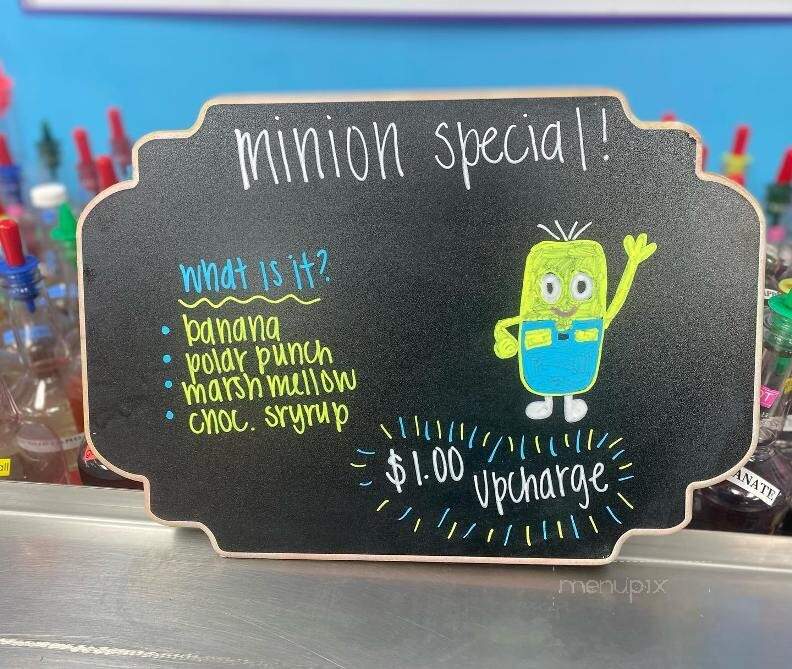 minion special!
What is it?
• banana
• polar punch
• marshmellow
• choc. sryrup
$1.00 upcharge
ANATE
menupix